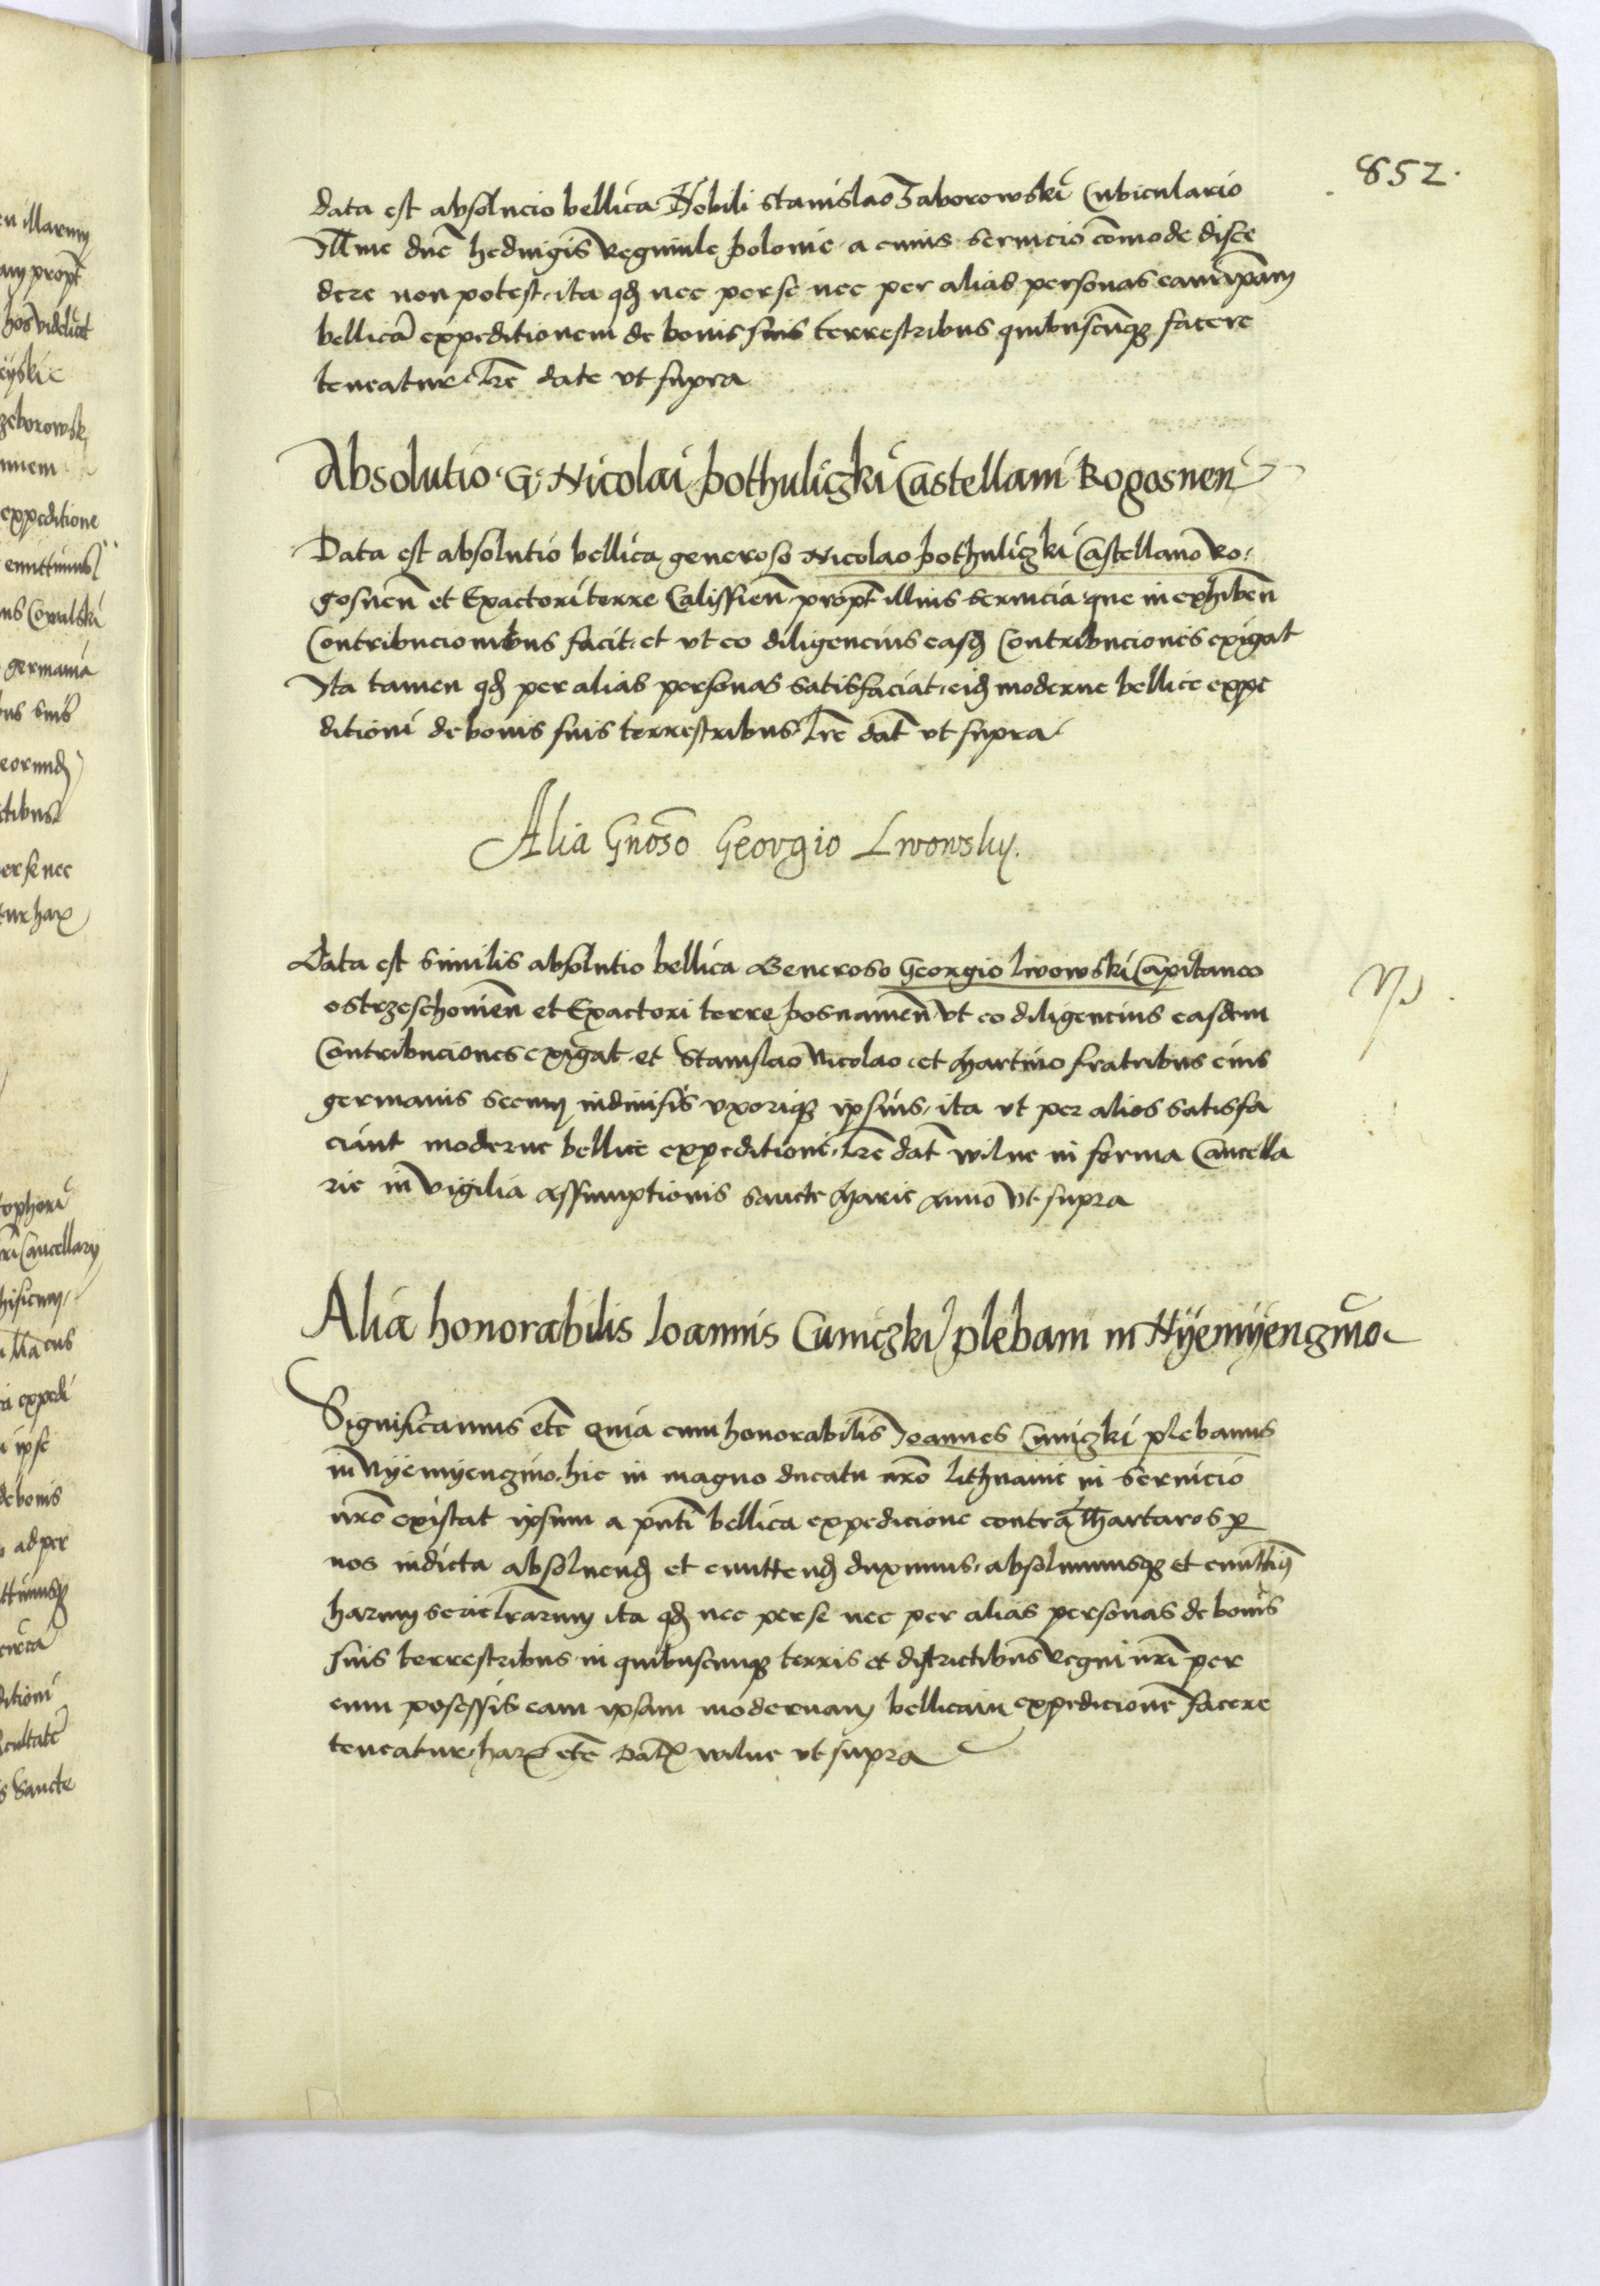 852.
data est absolucio bellica Nobili Stanislao Taborowski Cubiculario
Illme dne hedwigis Reginule polonie a cuius seruicio comode disce
dere non potest ita qd nec per se nec per alias personas eam ipam
bellica expeditionem de bonis suis terrestribus quibuscuqz facere
teneatur lre date vt supra
Absolutio G. Nicolai pothuliczki Castellani Rogosnen
Data est absolutio bellica generoso Nicolao pothuliczki Castellano Ro:
gosnen et Exactori terre Calissien propt illius seruicia que in exhiben
Contribucionibus facit et vt eo diligencius easd Contribuciones exigat
Ita tamen qd per alias personas satisfaciat eid moderne bellice expe
ditioni de bonis suis terrestribus lre dat vt supra
Alia Gnoso Georgio Lwowsky.
Data est similis absolutio bellica Generoso Georgio lwowski Capitaneo
ostrzeschonien et Exactori terre posnanien vt eo diligencius easdem
Contribuciones exigat et Stanislao Nicolao et Martino fratribus eius
germanis secum indiuisis vxoriqz ipsius ita vt per alios satisfa
ciant moderne bellice expeditioni lre dat wilne in forma Cancella
rie in vigilia Assumptionis Sancte Marie Anno vt supra
Alia honorabilis Ioannis Cuniczki plebani in Nyemyenginο
Significamus etc Quia cum honorabilis Ioannes Cuniczki plebanus
in Nyemyengino hic in magno ducatu nro lithuanie in seruicio
nro existat ipsum a pnti bellica expedicione contra Thartaros p
nos indicta absoluend et emittend duximus absoluimusqz et emittim
harum serie lrarum ita qd nec per se nec per alias personas de bonis
suis terrestribus in quibuscunqz terris et districtibus Regni nri per
eum possessis eam ipsam modernam bellicam expedicione facere
teneatur har etc Dat wilne vt supra